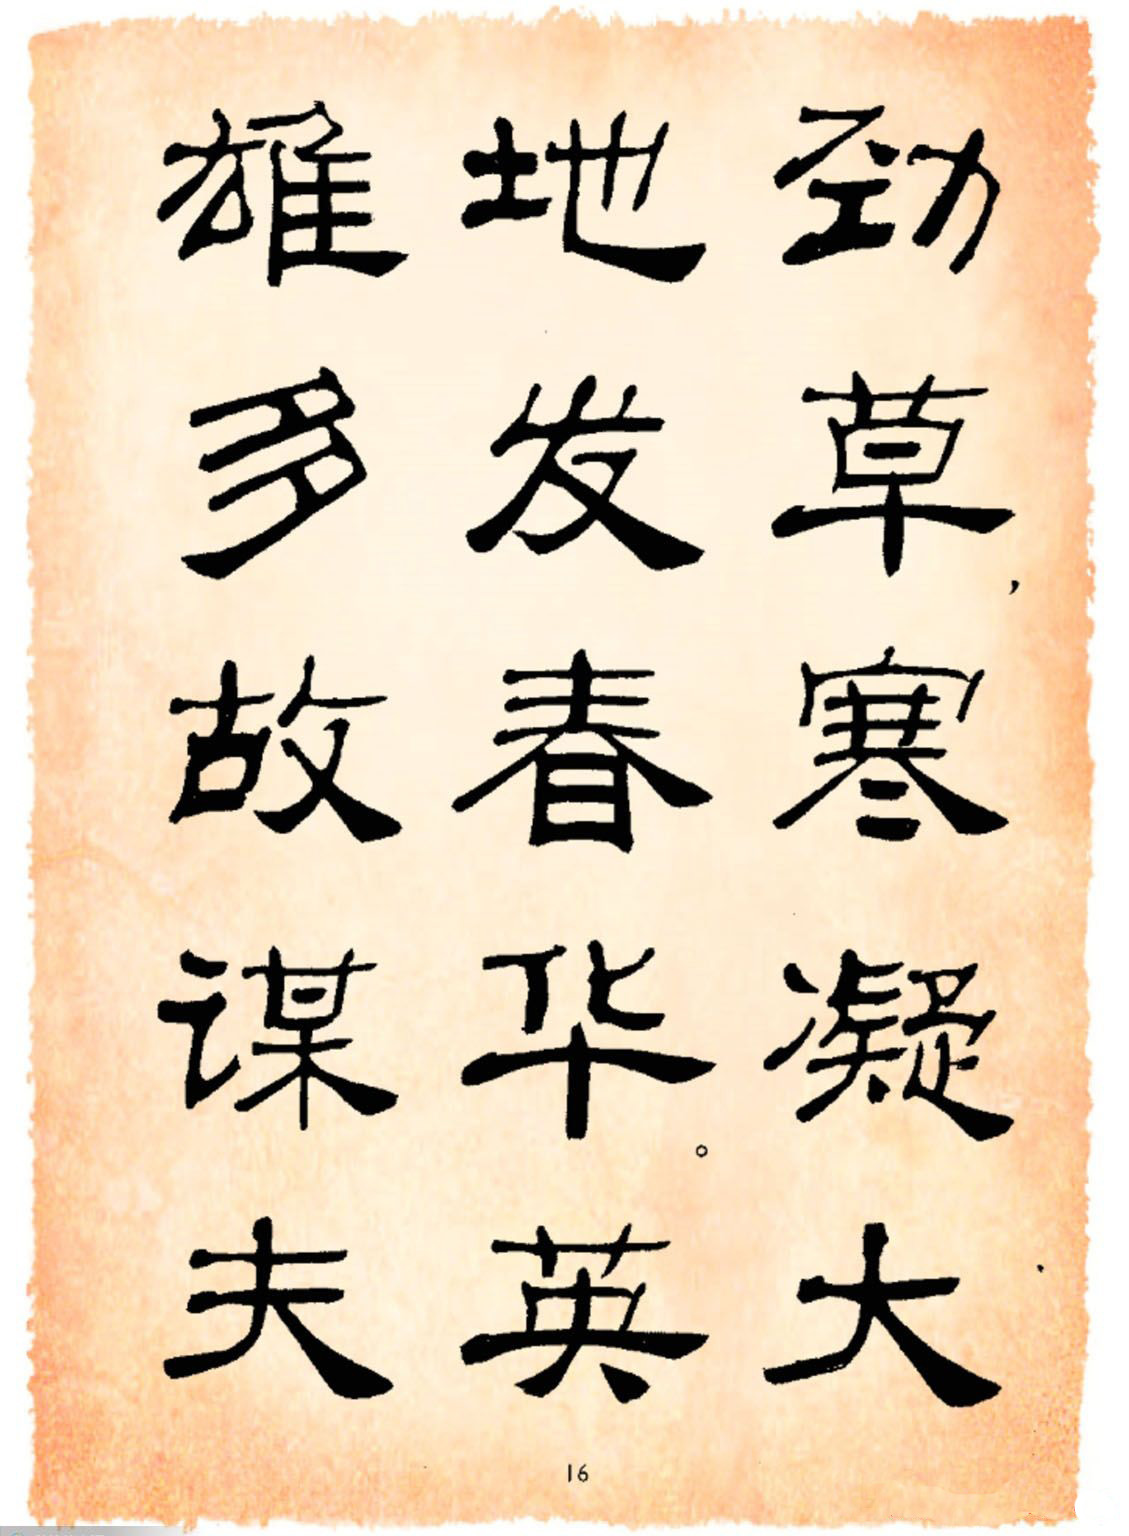 劲草，寒凝大
地发春华。英
雄多故谋夫
16